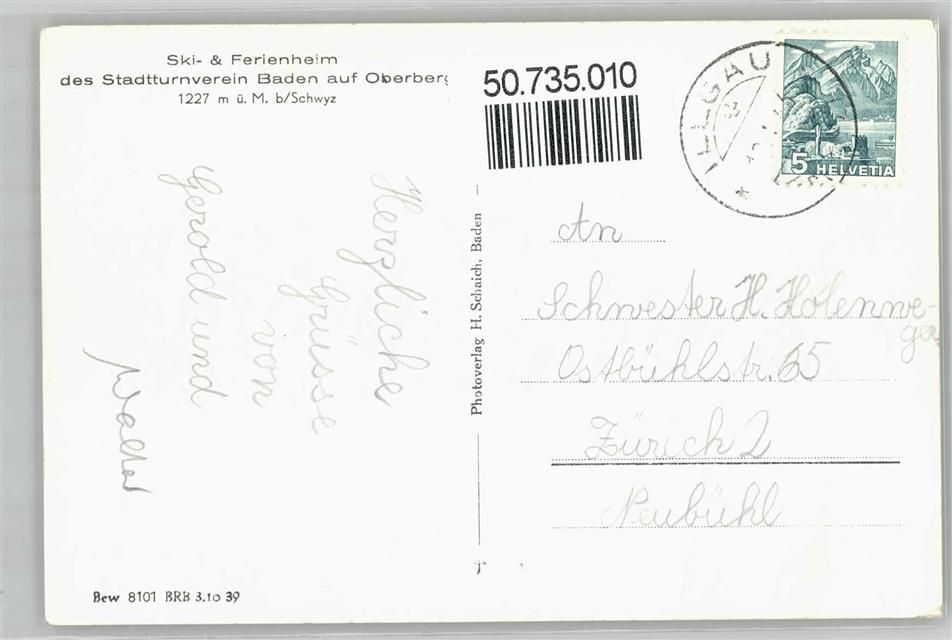 Ski- & Ferienheim
des Stadtturnverein Baden auf Oberberg
1227 m ü. M. b/Schwyz
50.735.010
ILLGAU
5 HELVETIA
Herzliche
Grüsse
von
Gerold und
Walter
Photoverlag H. Schaich, Baden
An
Schwester H. Holenwe-
ger
Ostbühlstr. 65
Zürich 2
Neubühl
Bew 8101 BRB 3.10 39